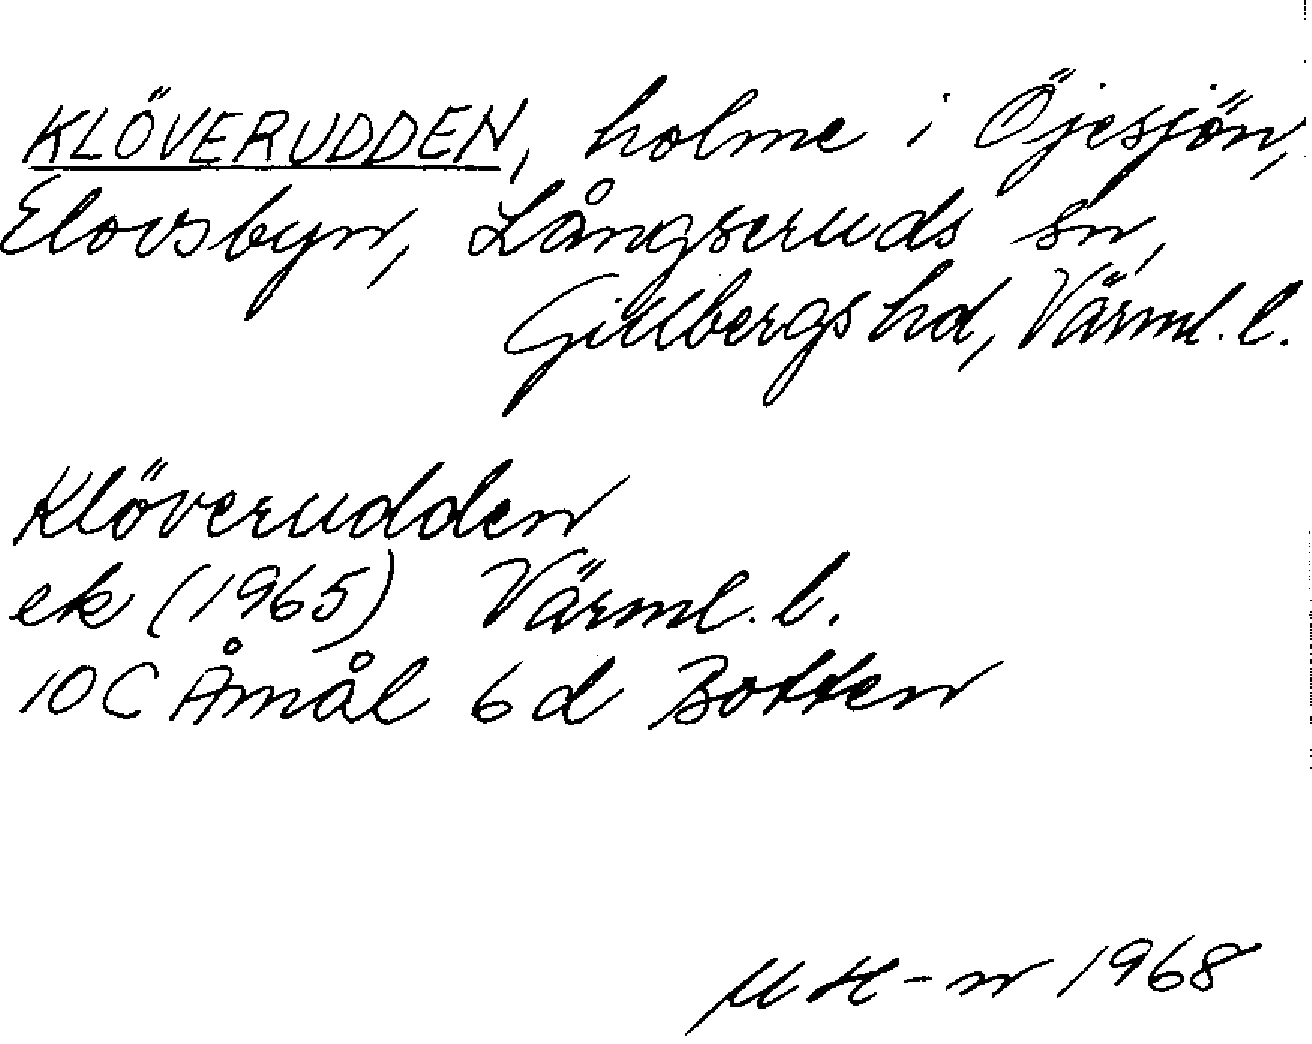 KLÖVERUDDEN, holme i Öjesjön,
Elovsbyn, Långseruds sn,
Gillbergs hd, Värml. l.
Klöverudden
ek (1965) Värml. l.
10 C Åmål 6 d Botten
1968